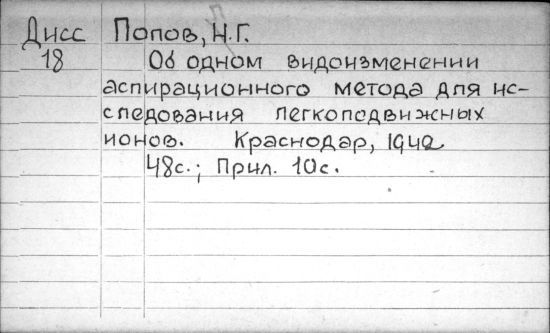 Дисс Попов, Н.Г.
18 Об одном видоизменении
аспирационного метода для ис-
следования легкоподвижных
ионов. Краснодар, 1942
48с.; Прил. 10с.